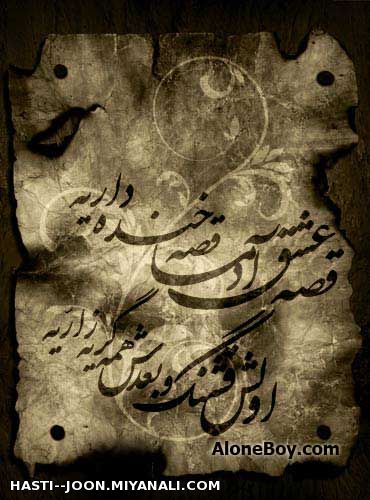 قصه عشق آدما قصه خنده داریه
اولش قشنگ و بعدش همه گریه زاریه
AloneBoy.com
HASTI--JOON.MIYANALI.COM